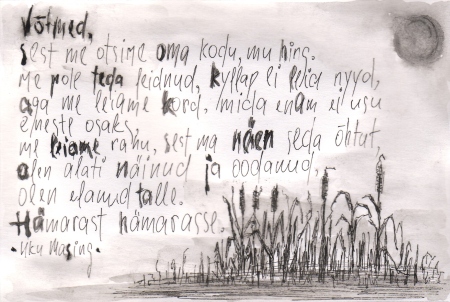 Võtmed,
sest me otsime oma kodu, mu hing.
me pole teda leidnud, kyllap ei leia nyyd,
aga me leiame kord, mida enam ei usu
eneste osaks,
me leiame rahu, sest ma näen seda õhtut,
olen alati näinud ja oodanud,
olen elanud talle.
Hämarast hämarasse.
·Uku Masing·